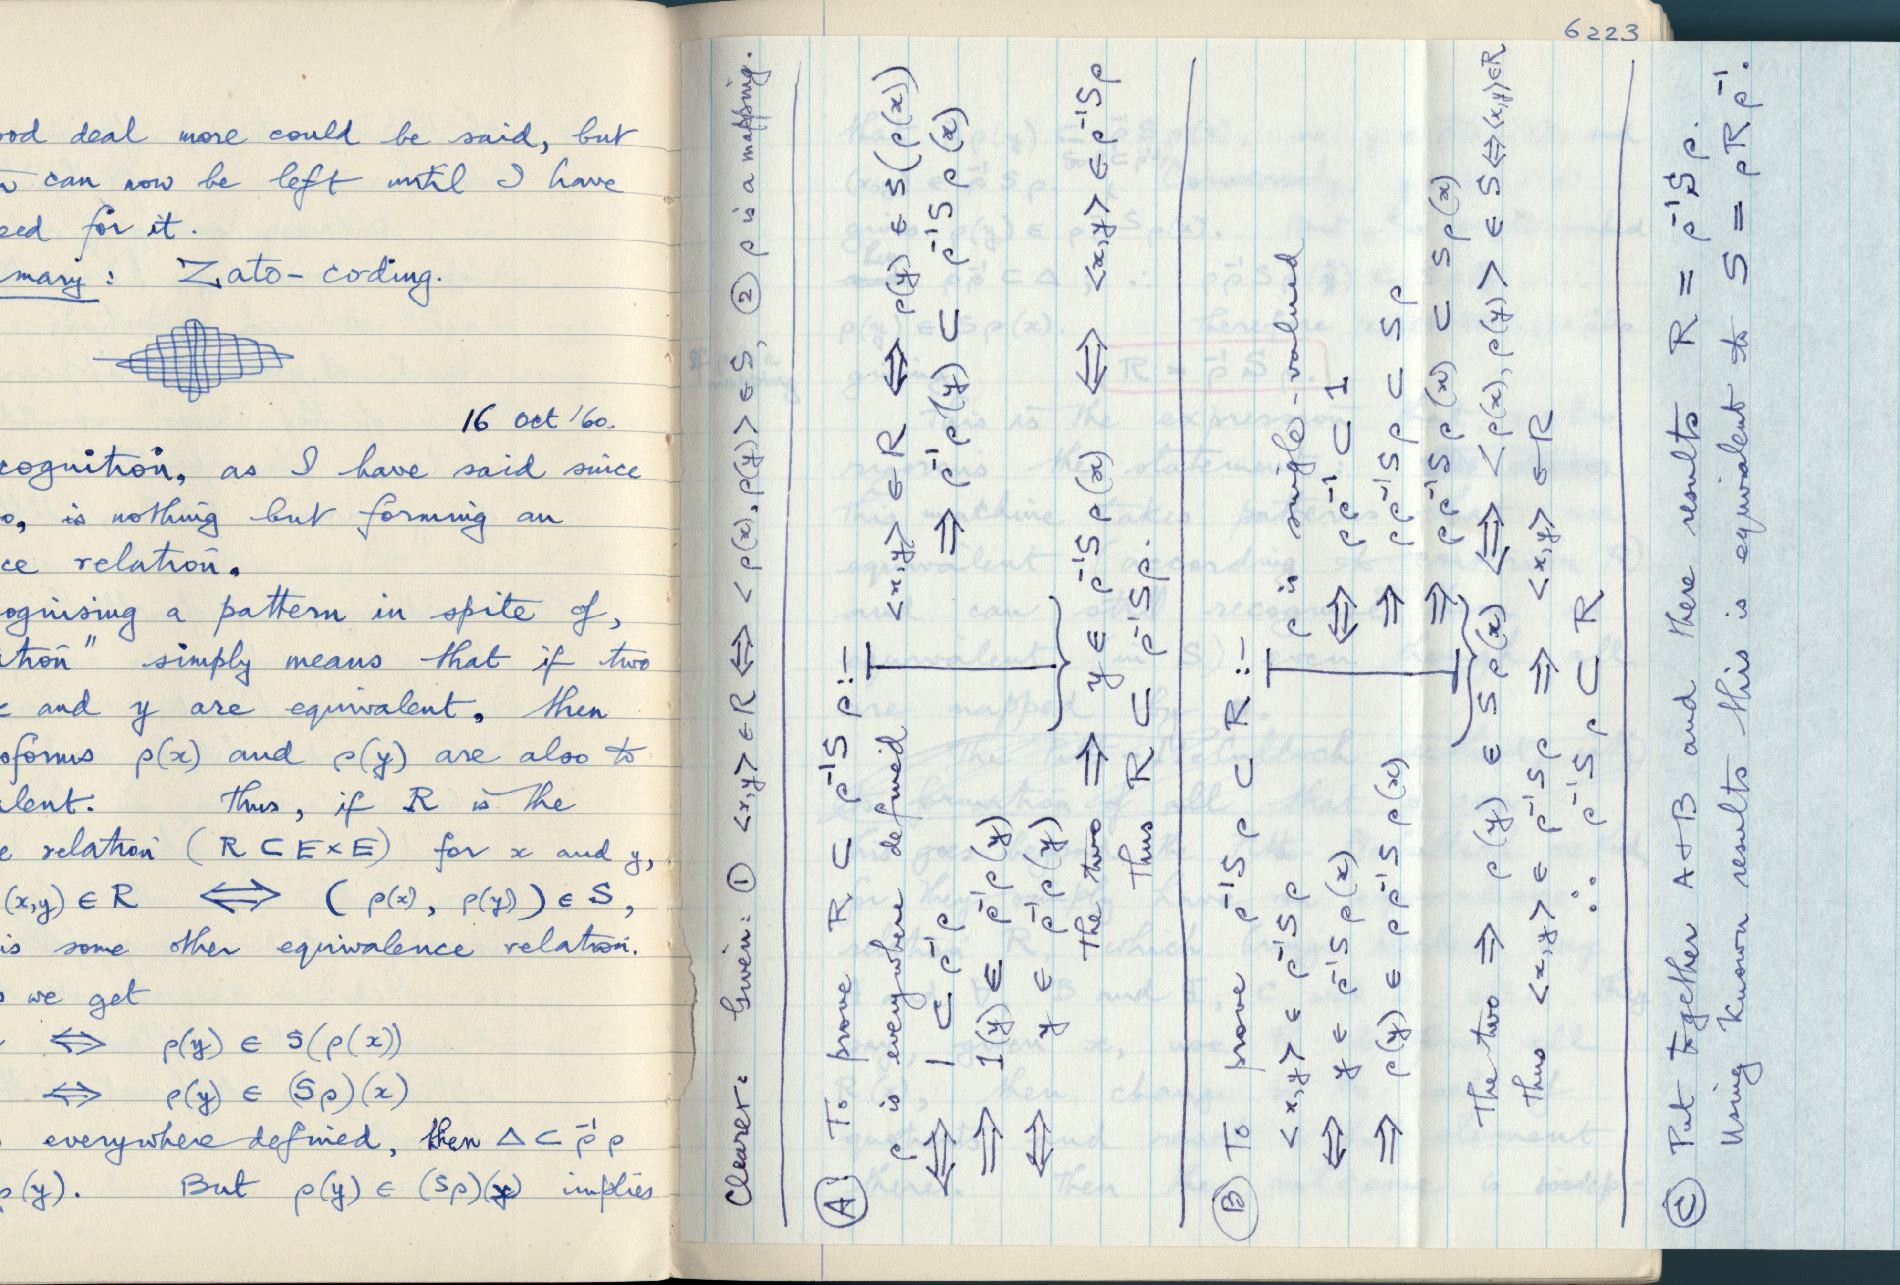 6223
ood deal more could be said, but
can now be left until I have
eed for it.
mary: Zato-coding.
16 Oct '60.
cognition, as I have said since
o, is nothing but forming an
ce relation.
ognising a pattern in spite of,
tion" simply means that if two
x and y are equivalent, then
sforms ρ(x) and ρ(y) are also to
alent. Thus, if R is the
e relation (R ⊂ E×E) for x and y,
(x,y) ∈ R ⟺ (ρ(x), ρ(y)) ∈ S,
is some other equivalence relation.
s we get
⟺ ρ(y) ∈ S(ρ(x))
⟺ ρ(y) ∈ (Sρ)(x)
everywhere defined, then Δ ⊂ ρ⁻¹ρ
ρ(y). But ρ(y) ∈ (Sρ)(x) implies
Clearer. Given: ① <x,y> ∈ R ⟺ <ρ(x), ρ(y)> ∈ S, ② ρ is a mapping.
Ⓐ To prove R ⊂ ρ⁻¹Sρ :–
ρ is everywhere defined
⟺ 1 ⊂ ρ⁻¹ρ
⟹ 1(y) ∈ ρ⁻¹ρ(y)
⟺ y ∈ ρ⁻¹ρ(y)
<x,y> ∈ R ⟺ ρ(y) ∈ S(ρ(x))
⟹ ρ⁻¹ρ(y) ⊂ ρ⁻¹Sρ(x)
The two ⟹ y ∈ ρ⁻¹Sρ(x) ⟺ <x,y> ∈ ρ⁻¹Sρ
Thus R ⊂ ρ⁻¹Sρ.
Ⓑ To prove ρ⁻¹Sρ ⊂ R :–
<x,y> ∈ ρ⁻¹Sρ
⟺ y ∈ ρ⁻¹Sρ(x)
⟹ ρ(y) ∈ ρρ⁻¹Sρ(x)
ρ is single-valued
⟺ ρρ⁻¹ ⊂ 1
⟹ ρρ⁻¹Sρ ⊂ Sρ
⟹ ρρ⁻¹Sρ(x) ⊂ Sρ(x)
The two ⟹ ρ(y) ∈ Sρ(x) ⟺ <ρ(x), ρ(y)> ∈ S ⟺ (x,y) ∈ R
Thus <x,y> ∈ ρ⁻¹Sρ ⟹ <x,y> ∈ R
∴ ρ⁻¹Sρ ⊂ R
Ⓒ Put together A + B and there results R = ρ⁻¹Sρ.
Using known results this is equivalent to S = ρRρ⁻¹.